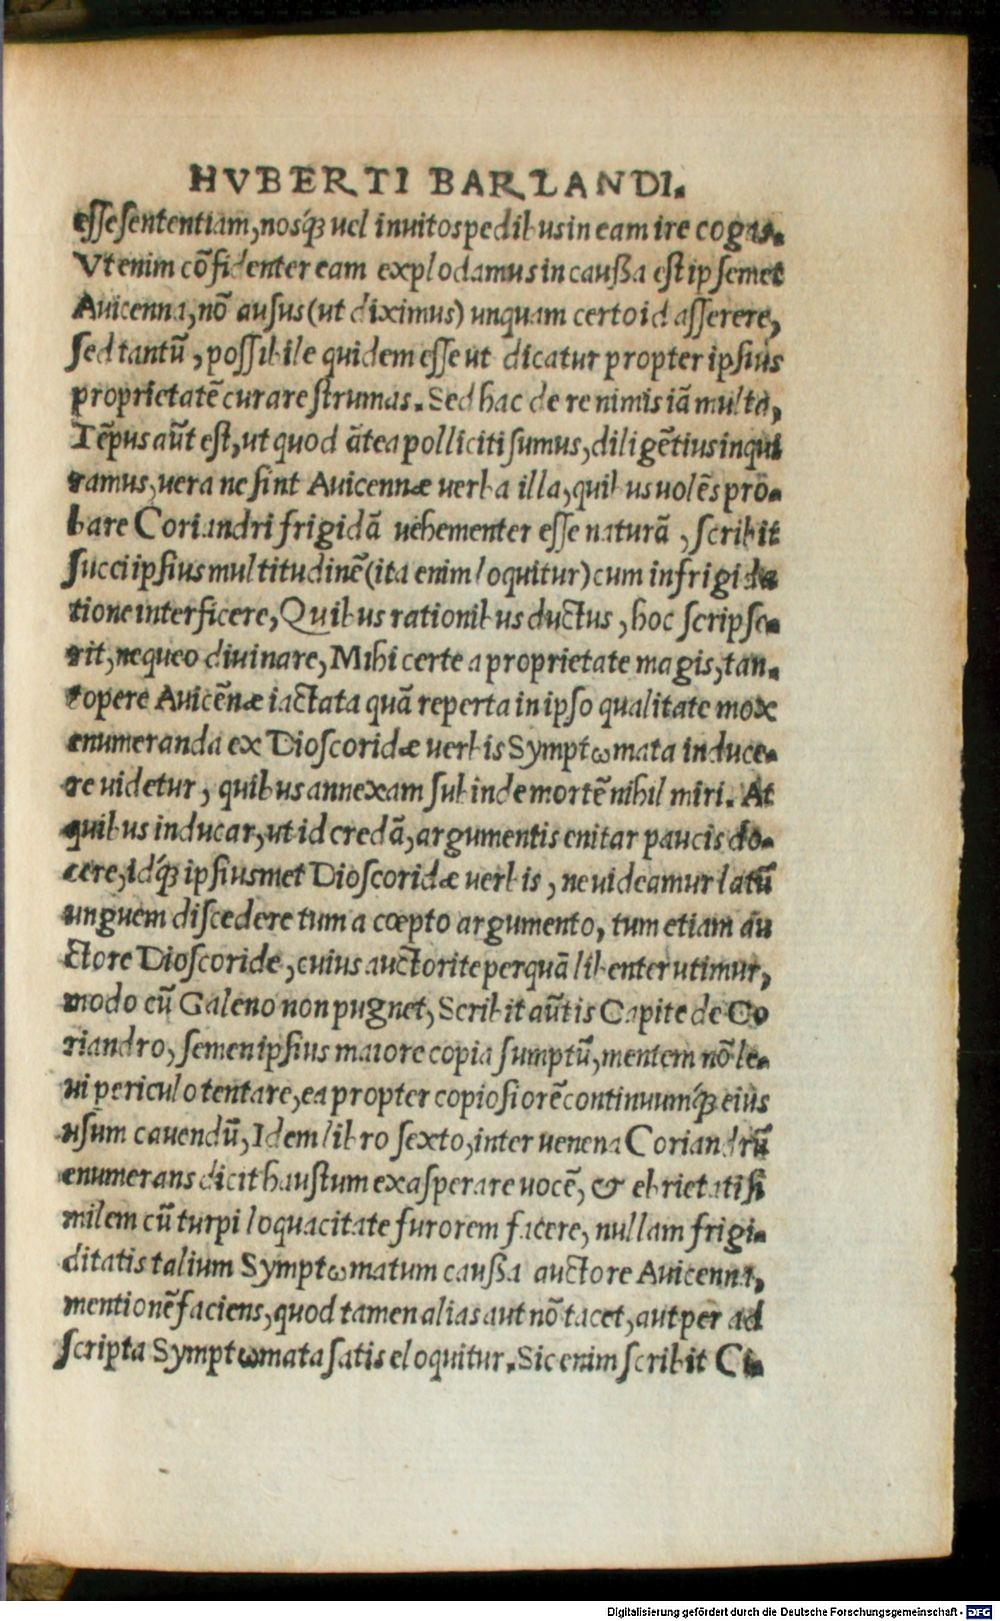 HVBERTI BARLANDI.
esse sententiam, nosq́ꝫ vel invitos pedibus in eam ire cogas.
Vt enim cōfidenter eam explodamus in caußa est ipsemet
Avicenna, nō ausus (ut diximus) unquam certo id asserere,
sed tantū, possibile quidem esse ut dicatur propter ipsius
proprietatē curare strumas. Sed hac de re nimis iā multa,
Tēpus aūt est, ut quod ātea polliciti sumus, diligētius inqui
ramus, vera ne sint Avicennæ verba illa, quibus volēs pro-
bare Coriandri frigidā vehementer esse naturā, scribit
succi ipsius multitudinē (ita enim loquitur) cum infrigida
tione interficere, Quibus rationibus ductus, hoc scripse-
rit, nequeo divinare, Mihi certe a proprietate magis, tan-
topere Avicēnæ iactata quā reperta in ipso qualitate mox
enumeranda ex Dioscoridæ verbis Symptωmata induce-
re videtur, quibus annexam subinde mortē nihil miri. At
quibus inducar, ut id credā, argumentis enitar paucis do-
cere, idq́ꝫ ipsiusmet Dioscoridæ verbis, ne videamur latū
unguem discedere tum a cœpto argumento, tum etiam au
ctore Dioscoride, cuius auctorite perquā libenter utimur,
modo cū Galeno non pugnet, Scribit aūt is Capite de Co
riandro, semen ipsius maiore copia sumptū, mentem nō le-
vi periculo tentare, ea propter copiosiorē continuumq́ꝫ eius
usum cavendū, Idem libro sexto, inter venena Coriandrū
enumerans dicit haustum exasperare vocē, & ebrietati si
milem cū turpi loquacitate furorem facere, nullam frigi-
ditatis talium Symptωmatum caußa auctore Avicenna,
mentionē faciens, quod tamen alias aut nō tacet, aut per ad
scripta Symptωmata satis eloquitur. Sic enim scribit Ci-
Digitalisierung gefördert durch die Deutsche Forschungsgemeinschaft - DFG